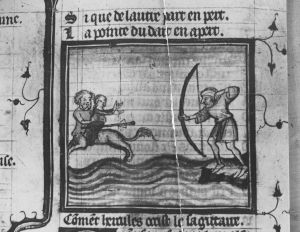 Si que de lautre part en pert.
La pointe du dart en apert.
Coment hercules ocist le sagitaire.